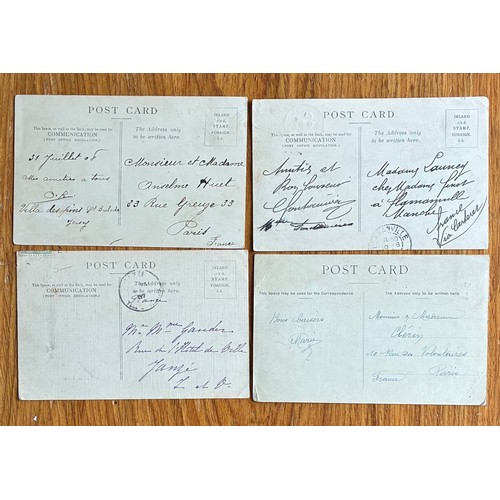 POST CARD
This Space, as well as the Back, may be used for
COMMUNICATION
(POST OFFICE REGULATION.)
The Address only
to be written here.
INLAND
½d.
STAMP.
FOREIGN
1d.
31 Juillet 06
Mes amitiés à tous
Villa des pins St
Jersey
Monsieur et Madame
Anselme Huet
33 Rue Greuze 33
Paris
France
POST CARD
This Space, as well as the Back, may be used for
COMMUNICATION
(POST OFFICE REGULATION.)
The Address only
to be written here.
INLAND
½d.
STAMP.
FOREIGN
1d.
Amitiés et
Bon Souvenir
Madame
chez Madame
à Flamanville
Manche
France
via
POST CARD
This Space, as well as the Back, may be used for
COMMUNICATION
(POST OFFICE REGULATION.)
The Address only
to be written here.
INLAND
½d.
STAMP.
FOREIGN
1d.
France
Mr Mme
Rue de l'Hôtel de Ville
Janzé
I et V
POST CARD
This Space may be used for the Correspondence.
The Address only to be written here.
Bons baisers
Marie
Monsieur & Madame
10 Rue des Volontaires
Paris
France